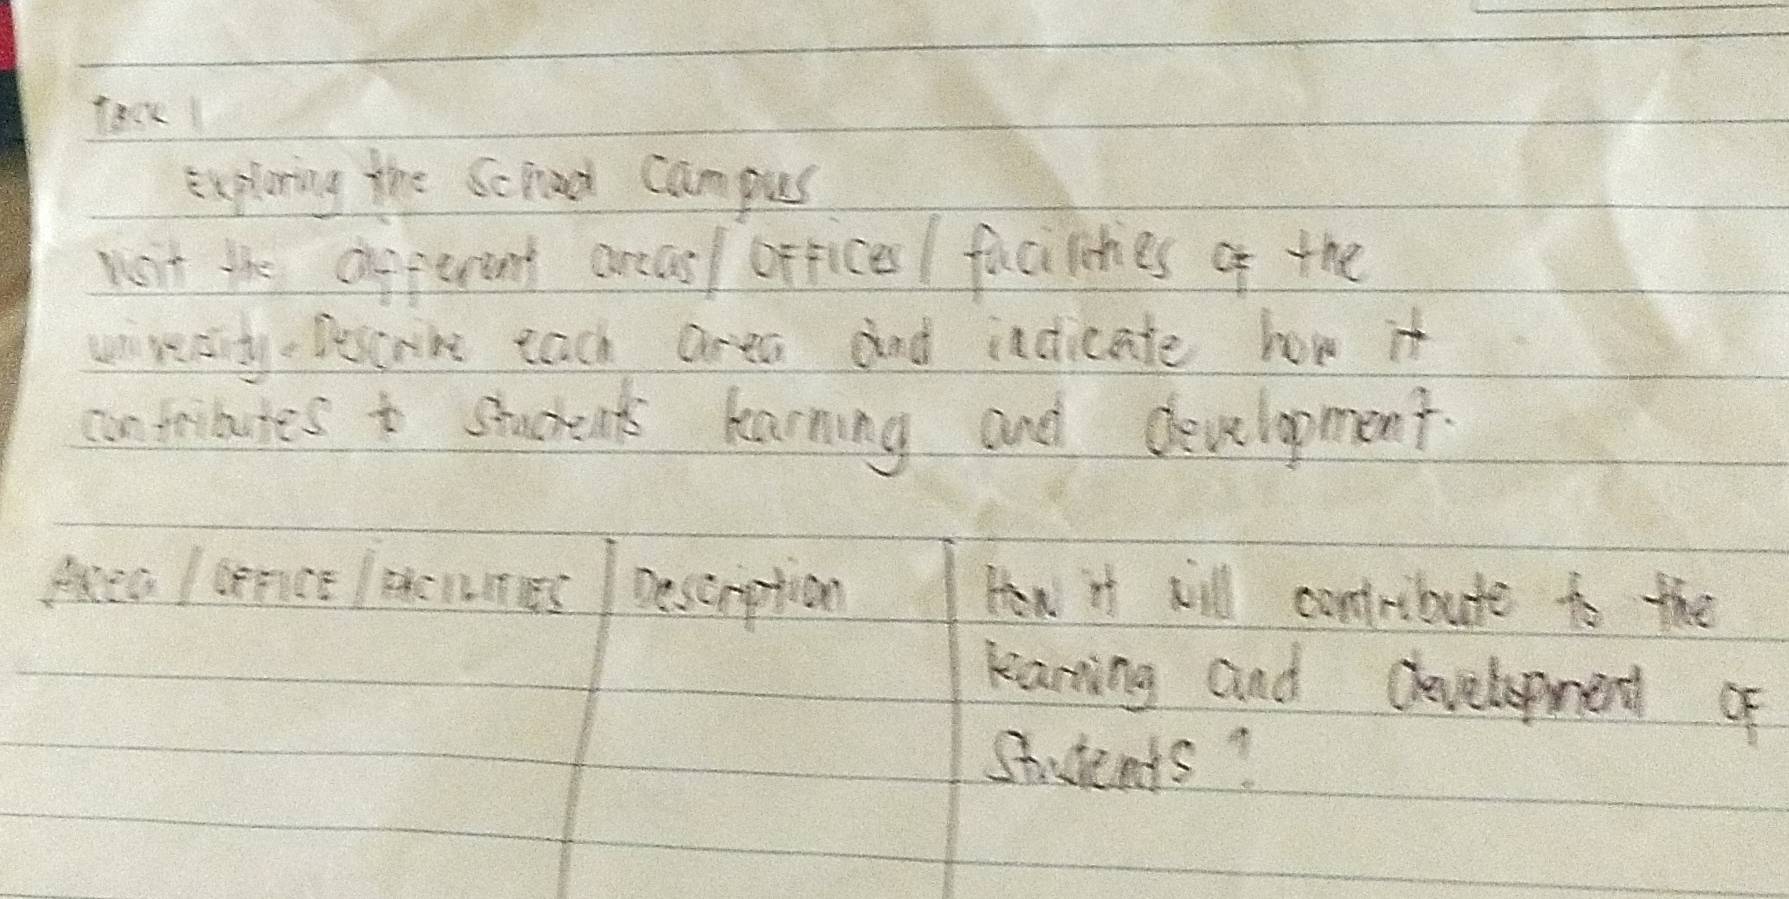 Task 1
Exploring the School Campus
visit the different areas/ offices/ facilities of the
university. Describe each area and indicate how it
contributes to students learning and development.
AREA / OFFICE / FACILITIES Description How it will contribute to the
learning and development of
Students?